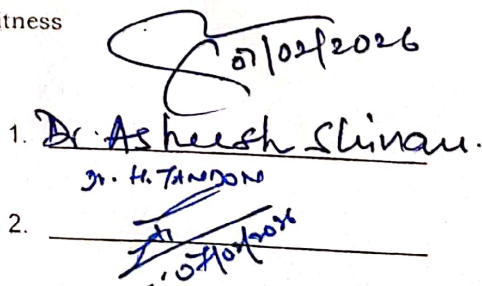 itness
07/02/2026
1. Dr. Asheesh
Dr. H. TANDON
2.
07/02/2026